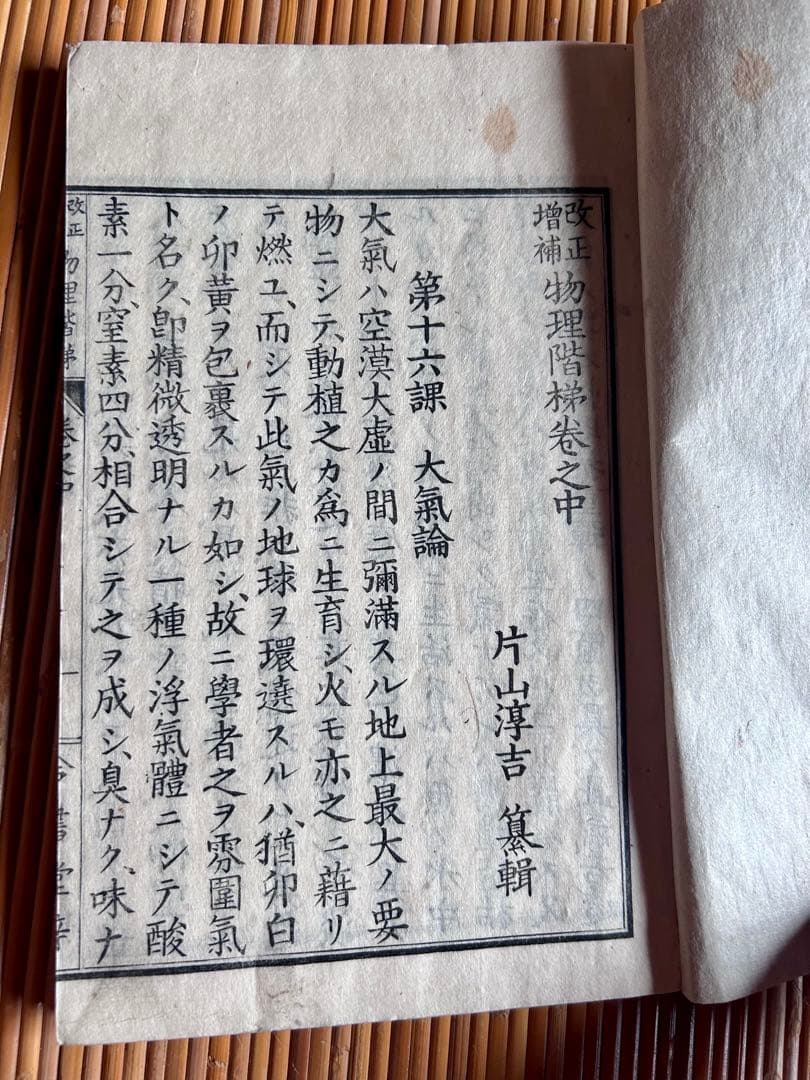 改正增補 物理階梯卷之中
片山淳吉 纂輯
第十六課 大氣論
大氣ハ空漠大虛ノ間ニ彌滿スル地上最大ノ要
物ニシテ、動植之カ爲ニ生育シ、火モ亦之ニ藉リ
テ燃ユ、而シテ此氣ノ地球ヲ環遶スルハ、猶卵白
ノ卵黃ヲ包裹スルカ如シ、故ニ學者之ヲ雰圍氣
ト名ク、卽精微透明ナル一種ノ浮氣體ニシテ酸
素一分、窒素四分、相合シテ之ヲ成シ、臭ナク、味ナ
改正 物理階梯 卷之中